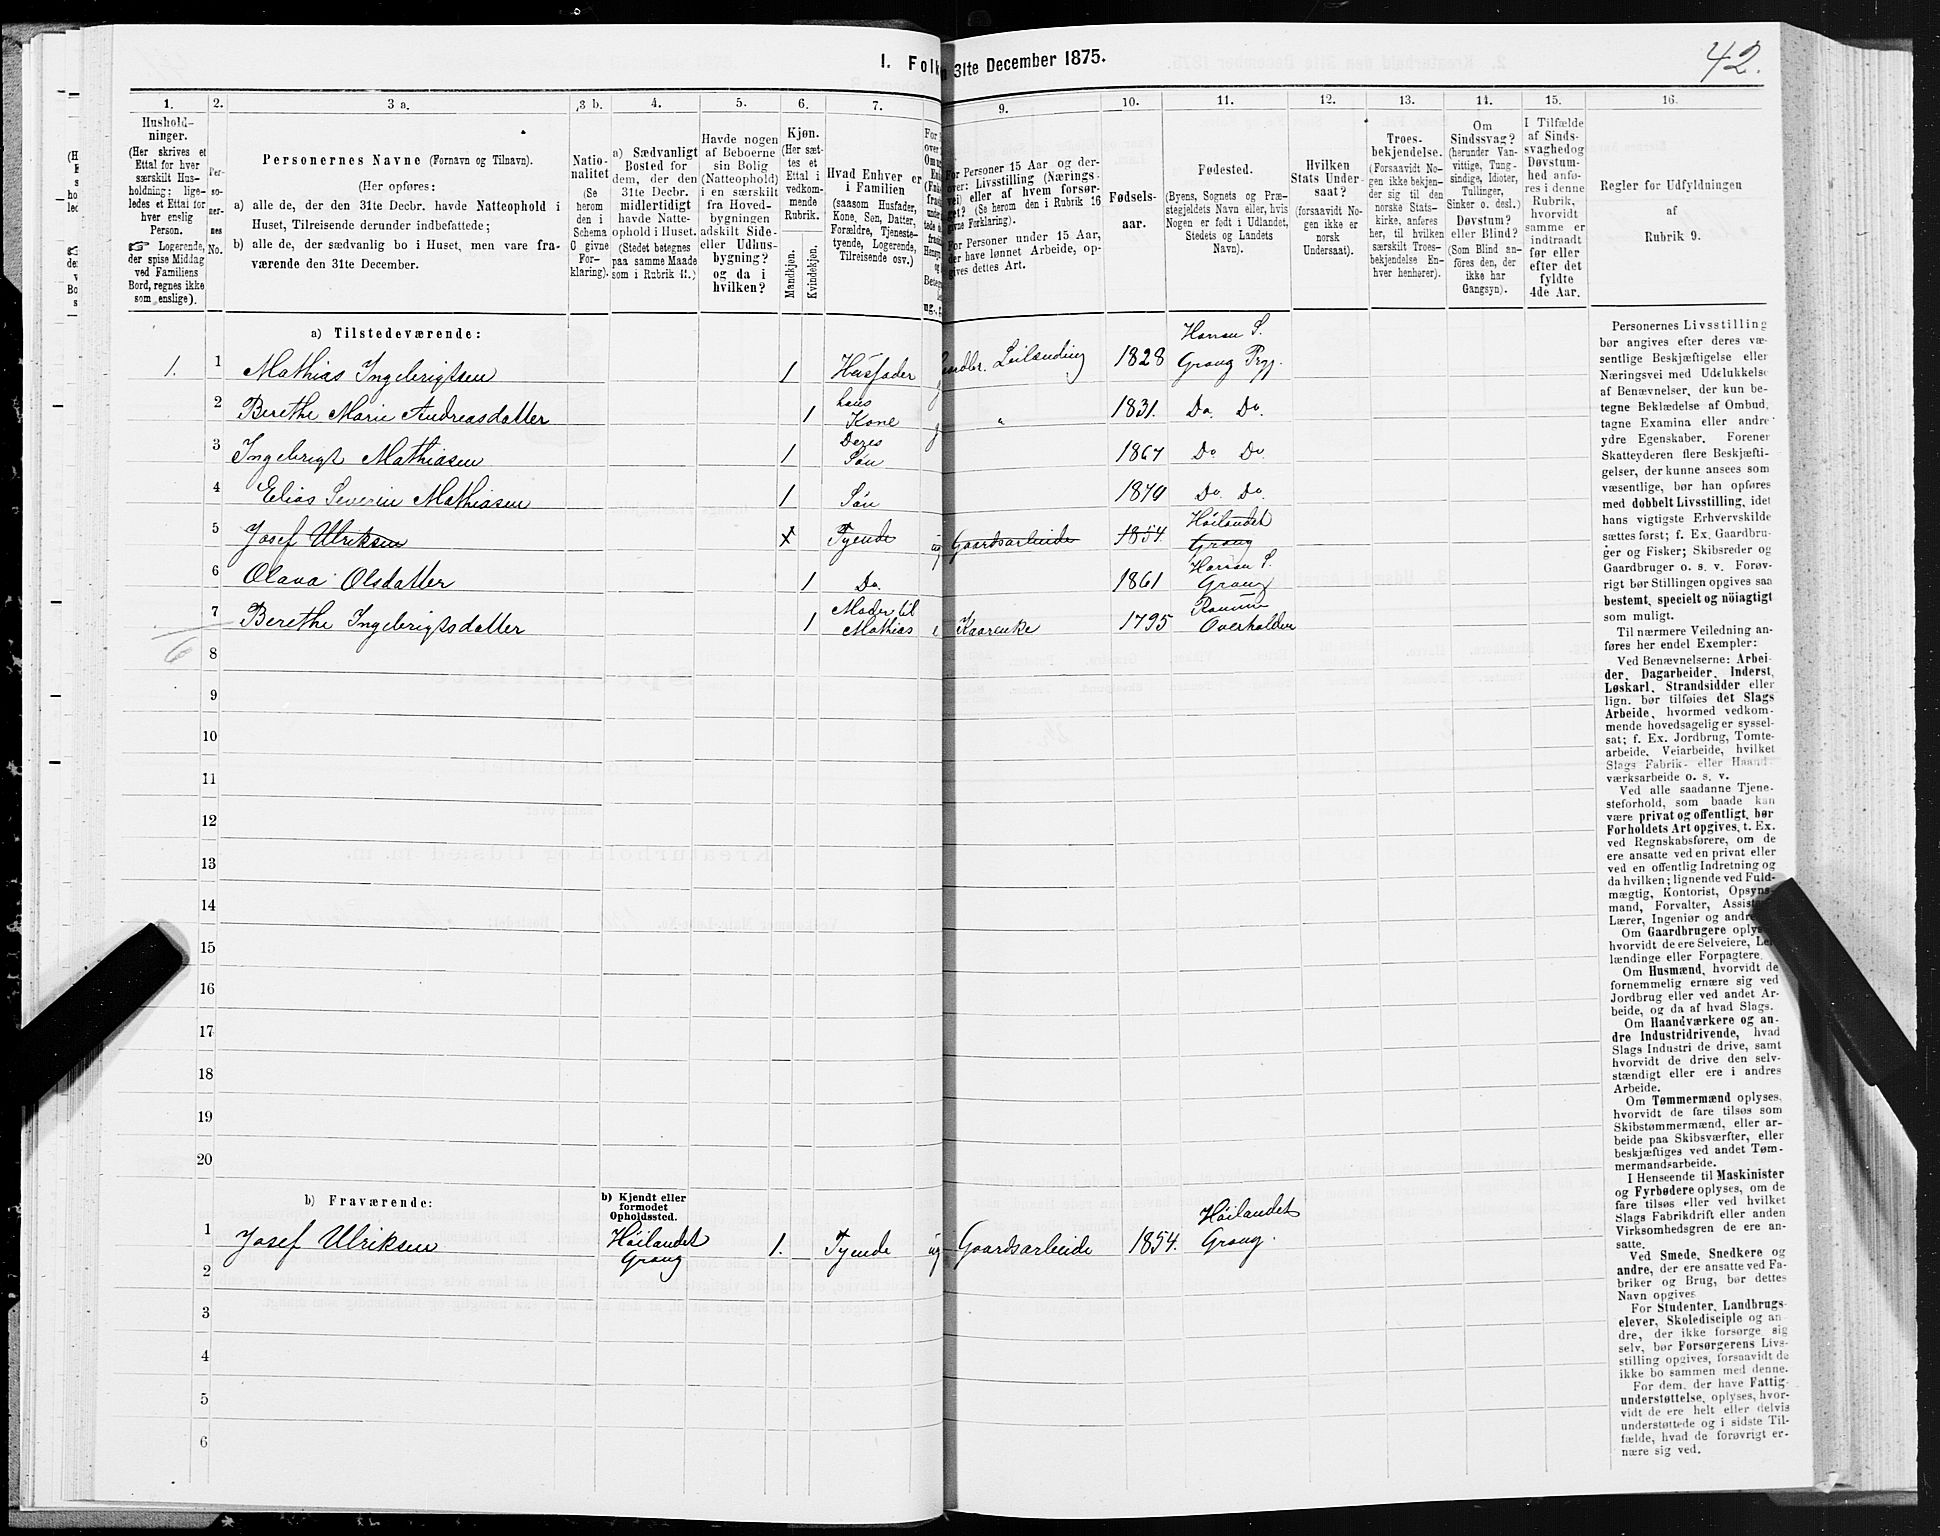 1. Folk 31te December 1875.
42.
1. 2. 3 a. 3 b. 4. 5. 6. 7. 9. 10. 11. 12. 13. 14. 15. 16.
Hushold-
ninger.
(Her skrives et
Ettal for hver
særskilt Hus-
holdning; lige-
ledes et Ettal for
hver enslig
Person.
☞ Logerende,
der spise Middag
ved Familiens
Bord, regnes ikke
som enslige).
Per-
so-
ner-
nes
No.
Personernes Navne (Fornavn og Tilnavn).
(Her opføres:
a) alle de, der den 31te Decbr. havde Natteophold i
Huset, Tilreisende derunder indbefattede;
b) alle de, der sædvanlig bo i Huset, men vare fra-
værende den 31te December.
Natio-
nalitet
(Se
herom
den i
Schema
C givne
For-
klaring).
a) Sædvanligt
Bosted for
dem, der den
31te Decbr.
midlertidigt
havde Natte-
ophold i Huset.
(Stedet betegnes
paa samme Maade
som i Rubrik 11.)
Havde nogen
af Beboerne
sin Bolig
(Natteophold)
i en særskilt
fra Hoved-
bygningen
adskilt Side-
eller Udhus-
bygning?
og da i
hvilken?
Kjøn.
(Her sæt-
tes et
Ettal i
vedkom-
mende
Rubrik.
Mandkjøn.
Kvindekjøn.
Hvad Enhver er
i Familien
(saasom Husfader,
Kone, Søn, Datter,
Forældre, Tjeneste-
tyende, Logerende,
Tilreisende osv.)
For Personer 15 Aar og der-
over: Livsstilling (Nærings-
vei) eller af hvem forsør-
get? (Se herom den i Rubrik 16
givne Forklaring).
For Personer under 15 Aar,
der have lønnet Arbeide, op-
gives dettes Art.
Fødsels-
aar.
Fødested.
(Byens, Sognets og Præ-
stegjeldets Navn eller, hvis
Nogen er født i Udlandet,
Stedets og Landets
Navn).
Hvilken
Stats Under-
saat?
(forsaavidt No-
gen ikke er
norsk
Undersaat).
Troes-
bekjendelse.
(Forsaavidt No-
gen ikke bekjen-
der sig til den
norske Stats-
kirke, anføres
her, til hvilken
særskilt Troes-
bekjendelse En-
hver henhører).
Om
Sindssvag?
(herunder Van-
vittige, Tung-
sindige, Idioter,
Tullinger,
Sinker o. desl.)
Døvstum?
eller Blind?
(Som Blind an-
føres den, der
ikke har
Gangsyn).
I Tilfælde
af Sinds-
svaghed og
Døvstum-
hed anfø-
res i denne
Rubrik,
hvorvidt
samme er
indtraadt
før eller
efter det
fyldte
4de Aar.
Regler for Udfyldningen
af
Rubrik 9.
a) Tilstedeværende:
1. 1 Mathias Ingebrigtsen 1 Husfader Gaardbr. Leilænding 1828 Harran S. Grong Prgj.
2 Berethe Marie Andreasdatter 1 hans Kone " 1831. Do. Do.
3 Ingebrigt Mathiasen 1 Deres Søn 1867 Do Do.
4 Elias Severin Mathiasen 1 Søn 1870 Do. Do.
5 Josef Ulriksen 1 Tyende ug Gaardsarbeide 1854 Höilandet Grong
6 Olava Olsdatter 1 Do. 1861 Harran S. Grong
7 Berethe Ingebrigtsdatter 1 Moder til Mathias e Kaarenke 1795 Ranum Overhalden
6
8
9
10
11
12
13
14
15
16
17
18
19
20
b) Fraværende:
b) Kjendt eller
formodet
Opholdssted.
1 Josef Ulriksen Höilandet Grong 1. Tyende ug Gaardsarbeide 1854. Höilandet Grong.
2
3
4
5
6
Personernes Livsstilling
bør angives efter deres væ-
sentlige Beskjæftigelse eller
Næringsvei med Udelukkelse
af Benævnelser, der kun be-
tegne Beklædelse af Ombud,
tagne Examina eller andre
ydre Egenskaber. Forener
Skatteyderen flere Beskjæfti-
gelser, der kunne ansees som
væsentlige, bør han opføres
med dobbelt Livsstilling, idet
hans vigtigste Erhvervskilde
sættes først; f. Ex. Gaardbru-
ger og Fisker; Skibsreder og
Gaardbruger o. s. v. Forøv-
rigt bør Stillingen opgives saa
bestemt, specielt og nöiagtigt
som muligt.
Til nærmere Veiledning an-
føres her endel Exempler:
Ved Benævnelserne: Arbei-
der, Dagarbeider, Inderst,
Løskarl, Strandsidder eller
lign. bør tilføies det Slags
Arbeide, hvormed vedkom-
mende hovedsagelig er syssel-
sat; f. Ex. Jordbrug, Tomte-
arbeide, Veiarbeide, hvilket
Slags Fabrik- eller Haand-
værksarbeide o. s. v.
Ved alle saadanne Tjene-
steforhold, som baade kan
være privat og offentligt, bør
Forholdets Art opgives, t. Ex.
ved Regnskabsførere, om de
ere ansatte ved en privat eller
ved en offentlig Indretning og
da hvilken; lignende ved Fuld-
mægtig, Kontorist, Opsyns-
mand, Forvalter, Assistent,
Lærer, Ingeniør og andre.
Om Gaardbrugere oplyses,
hvorvidt de ere Selveiere, Lei-
lændinge eller Forpagtere.
Om Husmænd, hvorvidt de
fornemmelig ernære sig ved
Jordbrug eller ved andet Ar-
beide, og da af hvad Slags.
Om Haandværkere og an-
dre Industridrivende, hvad
Slags Industri de drive, samt
hvorvidt de drive den selv-
stændigt eller ere i andres
Arbeide.
Om Tømmermænd oplyses,
hvorvidt de fare tilsøs som
Skibstømmermænd, eller ar-
beide paa Skibsværfter, eller
beskjæftiges ved andet Tøm-
mermandsarbeide.
I Henseende til Maskinister
og Fyrbødere oplyses, om de
fare tilsøs eller ved hvilket
Slags Fabrikdrift eller anden
Virksomhedsgren de ere an-
satte.
Ved Smede, Snedkere og
andre, der ere ansatte ved Fa-
briker og Brug, bør dettes
Navn opgives
For Studenter, Landbrugs-
elever, Skoledisciple og an-
dre, der ikke forsørge sig
selv, bør Forsørgerens Livs-
stilling opgives, forsaavidt de
ikke bo sammen med denne.
For dem, der have Fattig-
understøttelse, oplyses, hvor-
vidt de ere helt eller delvis
understøttede og i sidste Til-
fælde, hvad de forøvrigt er-
nære sig ved.